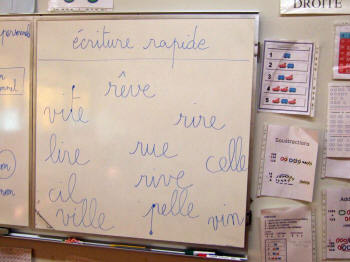 DROITE
écriture rapide
rêve
vite
rire
lire
rue
celle
rive
cil
ville
pelle
vin
1
2
3
4
5
Soustractions